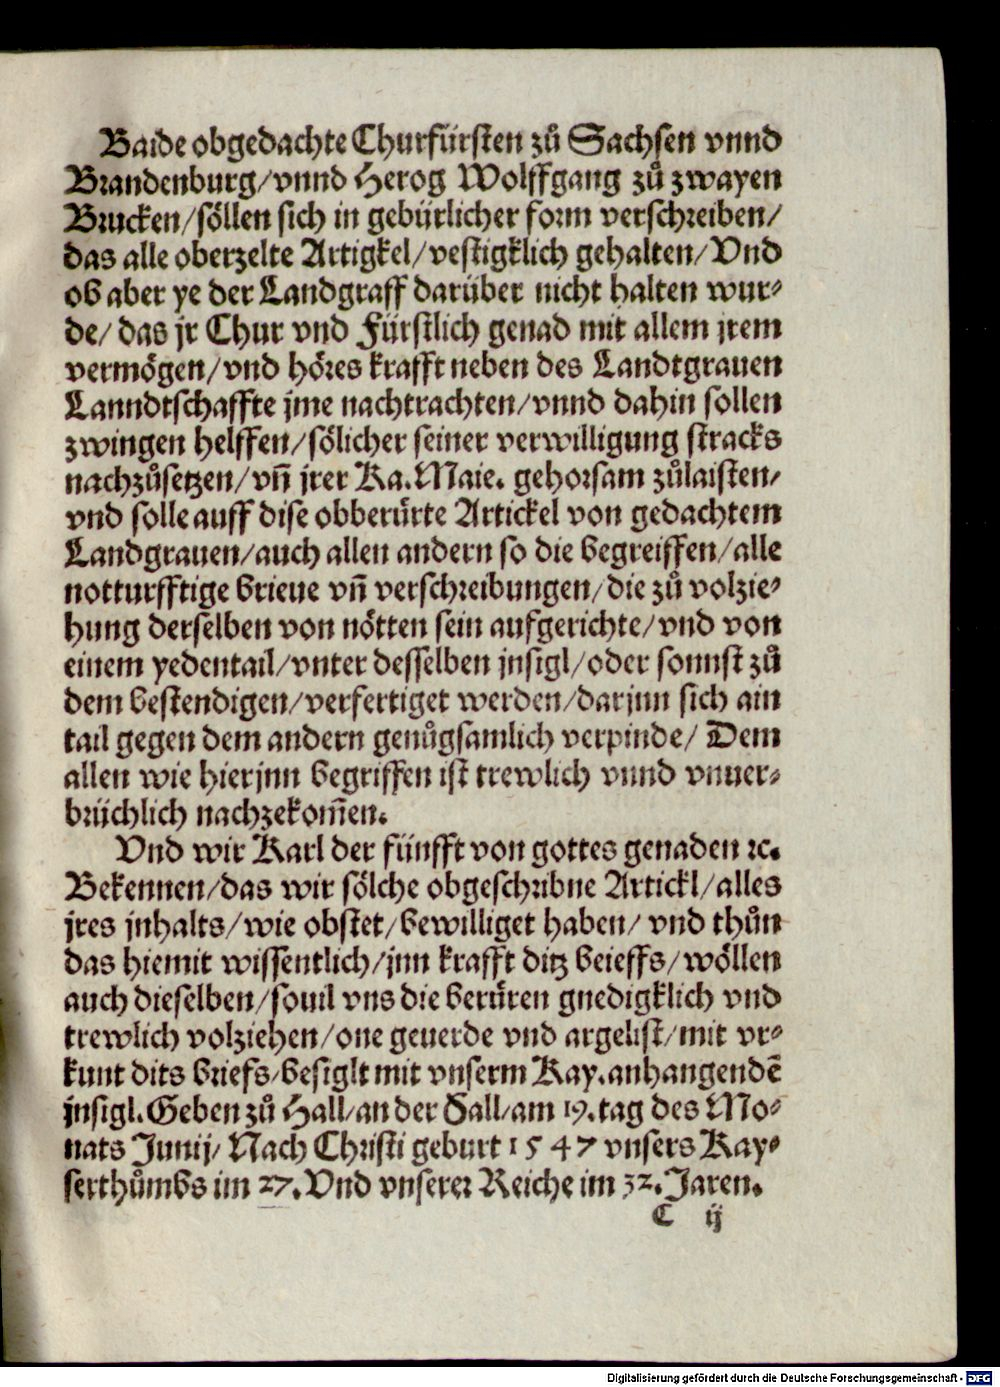 Baide obgedachte Churfürsten zů Sachsen vnnd
Brandenburg/vnnd Herog Wolffgang zů zwayen
Brucken/söllen sich in gebürlicher form verschreiben/
das alle oberzelte Artigkel/vestigklich gehalten/Vnd
ob aber ye der Landgraff darüber nicht halten wur-
de/ das jr Chur vnd Fürstlich genad mit allem jrem
vermögen/vnd höres krafft neben des Landtgrauen
Lanndtschaffte jme nachtrachten/vnnd dahin sollen
zwingen helffen/sölicher seiner verwilligung stracks
nachzůsetzen/vñ jrer Ka.Maie. gehorsam zůlaisten/
vnd solle auff dise obberürte Artickel von gedachtem
Landgrauen/auch allen andern so die begreiffen/alle
notturfftige brieue vñ verschreibungen/die zů volzie-
hung derselben von nötten sein aufgerichte/vnd von
einem yedentail/vnter desselben jnsigl/oder sonnst zů
dem bestendigen/verfertiget werden/darjnn sich ain
tail gegen dem andern genůgsamlich verpinde/ Dem
allen wie hierjnn begriffen ist trewlich vnnd vnuer-
brüchlich nachzekom̃en.
Vnd wir Karl der fünfft von gottes genaden ꝛc.
Bekennen/das wir sölche obgeschribne Artickl/alles
jres jnhalts/wie obstet/bewilliget haben/ vnd thůn
das hiemit wissentlich/jnn krafft ditz beieffs/wöllen
auch dieselben/souil vns die berüren gnedigklich vnd
trewlich volziehen/one geuerde vnd argelist/mit vr-
kunt dits briefs/besiglt mit vnserm Kay.anhangendē
jnsigl.Geben zů Hall/an der Sall/am 19.tag des Mo-
nats Junij/ Nach Christi geburt 1547 vnsers Kay-
serthůmbs im 27.Vnd vnserer Reiche im 32.Jaren.
C ij
Digitalisierung gefördert durch die Deutsche Forschungsgemeinschaft - DFG